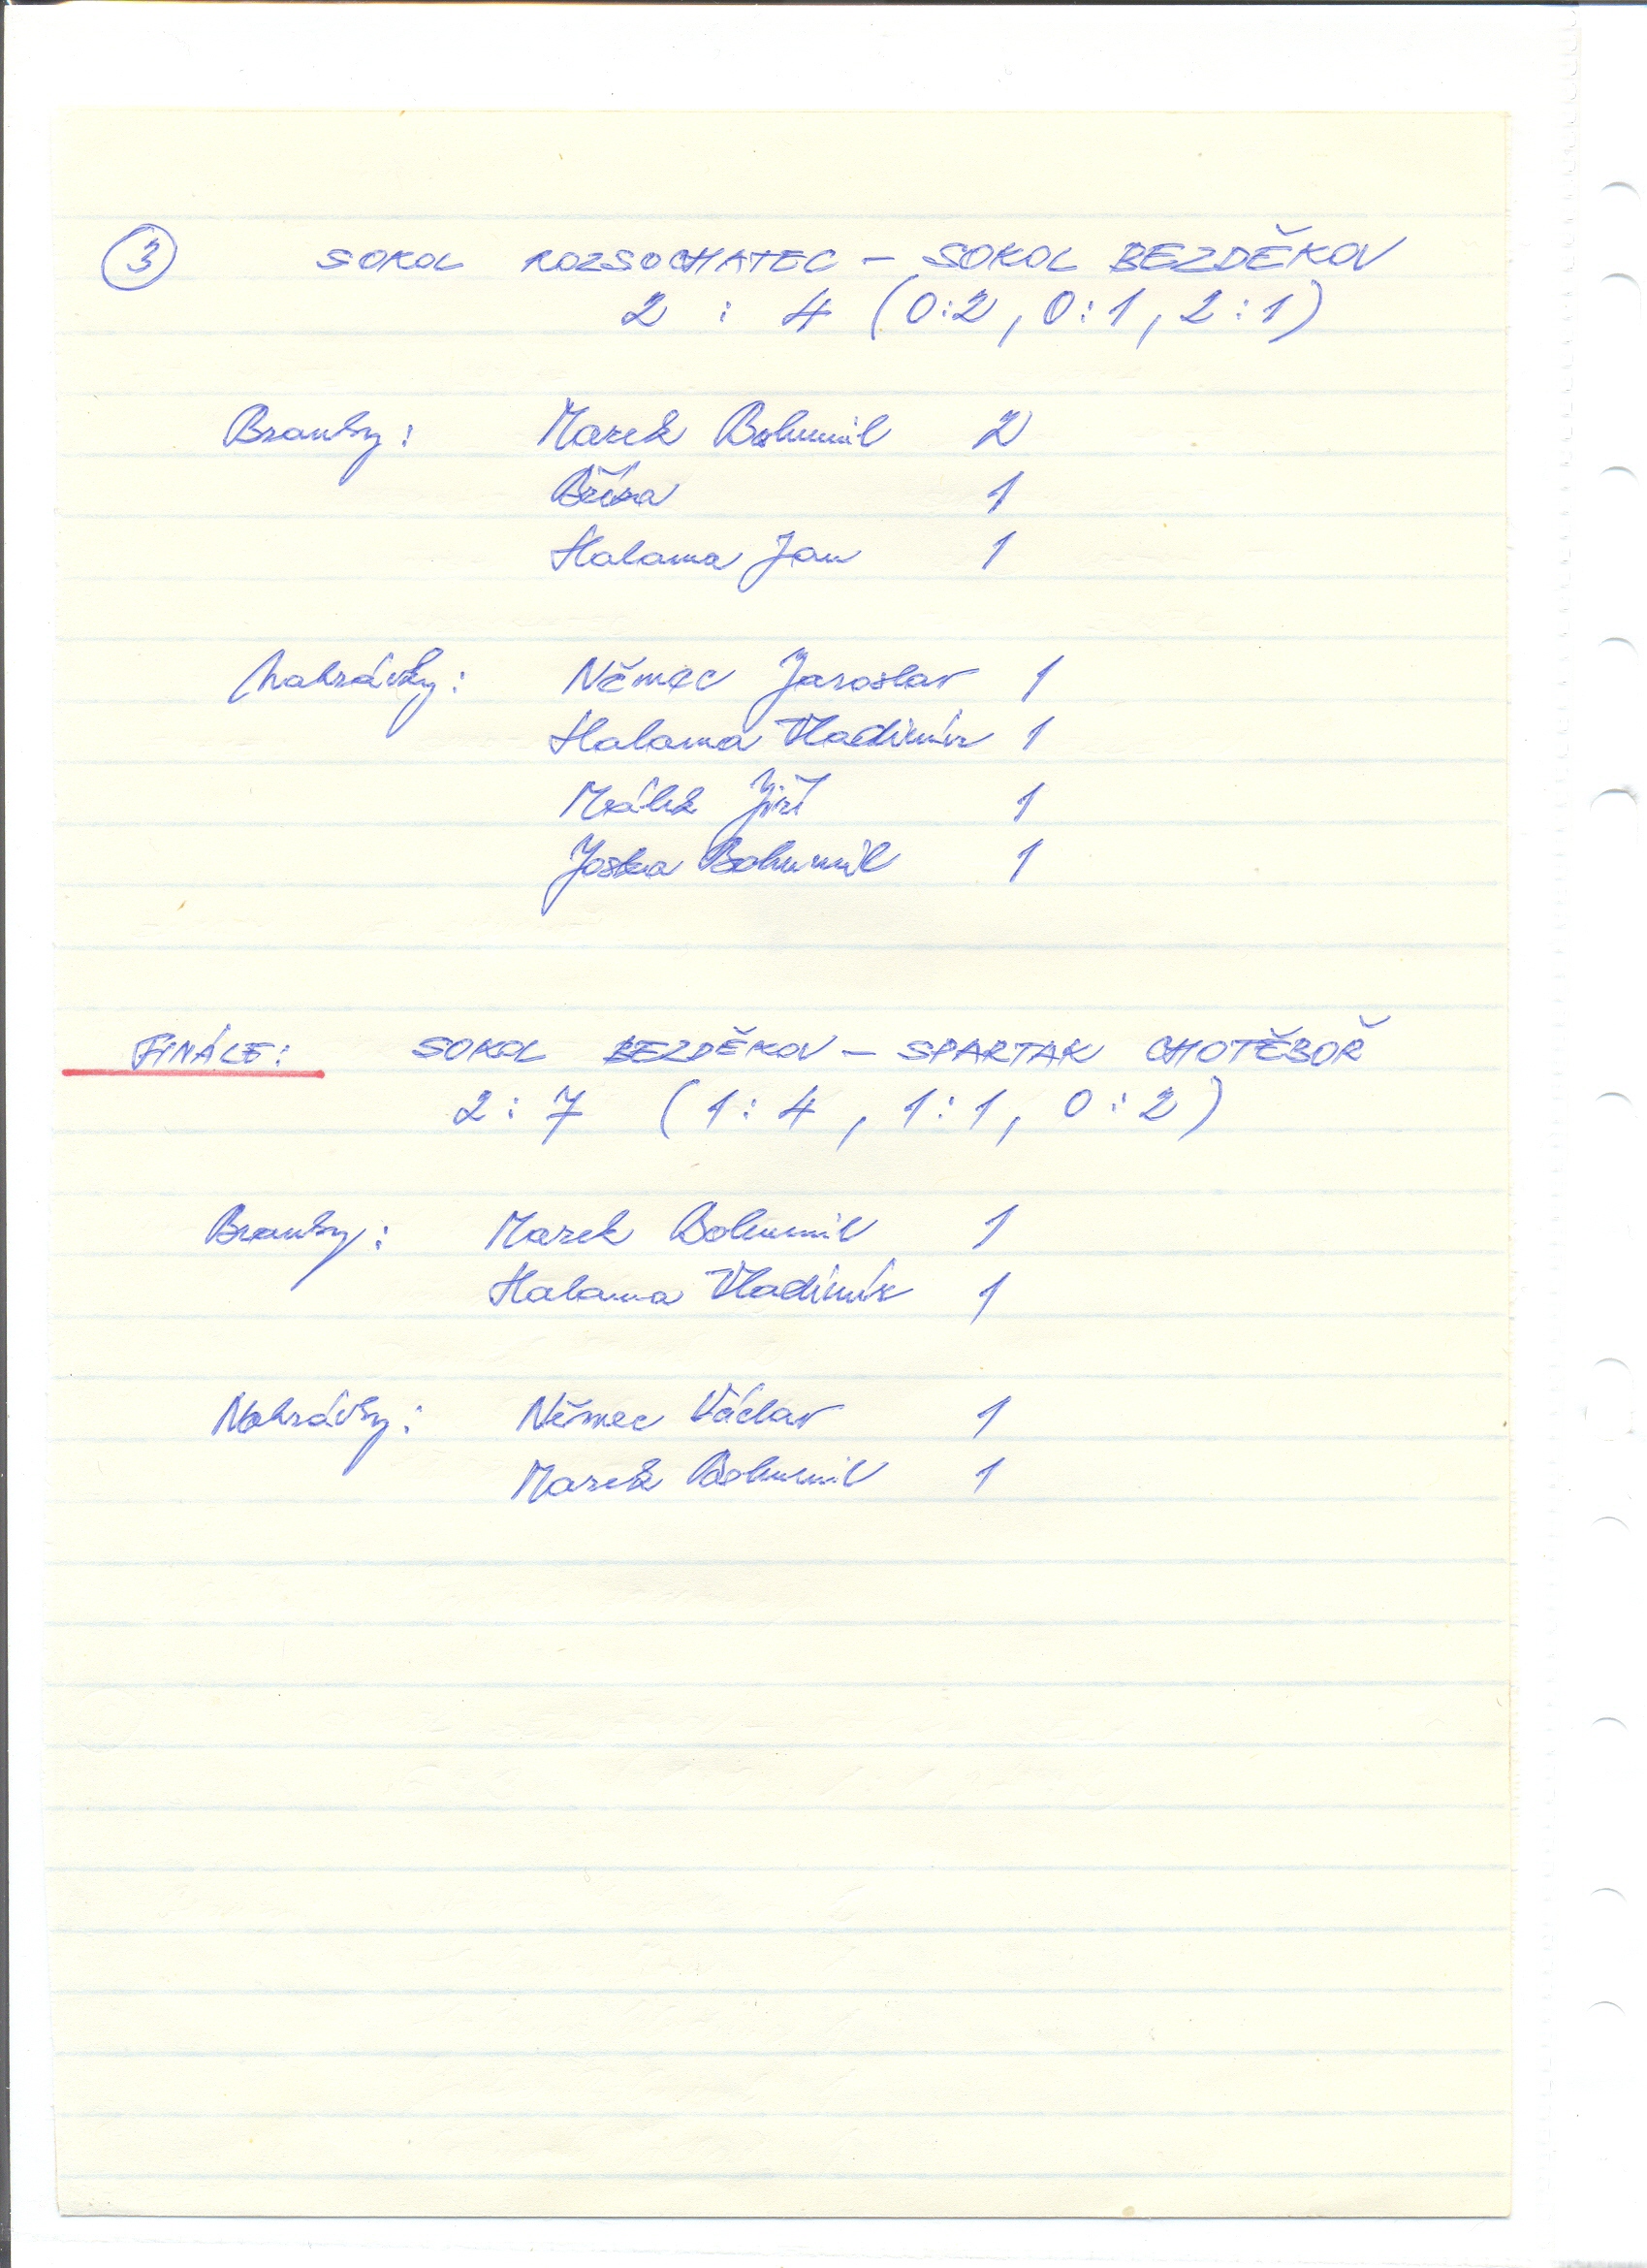 3 SOKOL ROZSOCHATEC – SOKOL BEZDĚKOV
2 : 4 (0:2, 0:1, 2:1)
Branky: Marek Bohumil 2
1
Halama Jan 1
Nahrávky: Němec Jaroslav 1
Halama Vladimír 1
Málek Jiří 1
Joska Bohumil 1
FINÁLE: SOKOL BEZDĚKOV – SPARTAK CHOTĚBOŘ
2:7 (1:4, 1:1, 0:2)
Branky: Marek Bohumil 1
Halama Vladimír 1
Nahrávky: Němec Václav 1
Marek Bohumil 1